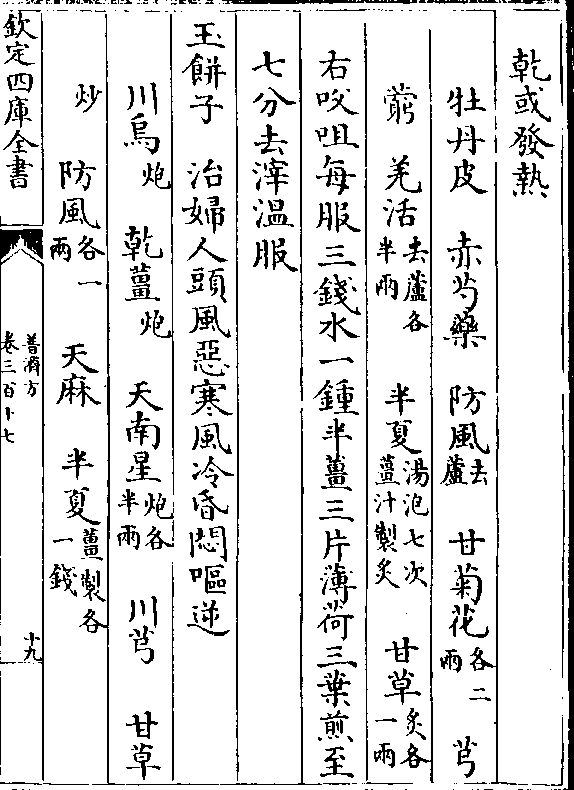 乾或發熱
牡丹皮 赤芍藥 防風去蘆 甘菊花各二兩 芎
藭 羌活去蘆各半兩 半夏湯泡七次薑汁製炙 甘草炙各一兩
右㕮咀每服三錢水一鍾半薑三片薄荷三葉煎至
七分去滓溫服
玉餅子 治婦人頭風惡寒風冷昏悶嘔逆
川烏炮 乾薑炮 天南星炮各半兩 川芎 甘草
炒 防風各一兩 天麻 半夏薑製各一錢
欽定四庫全書
普濟方
卷三百十七
十九